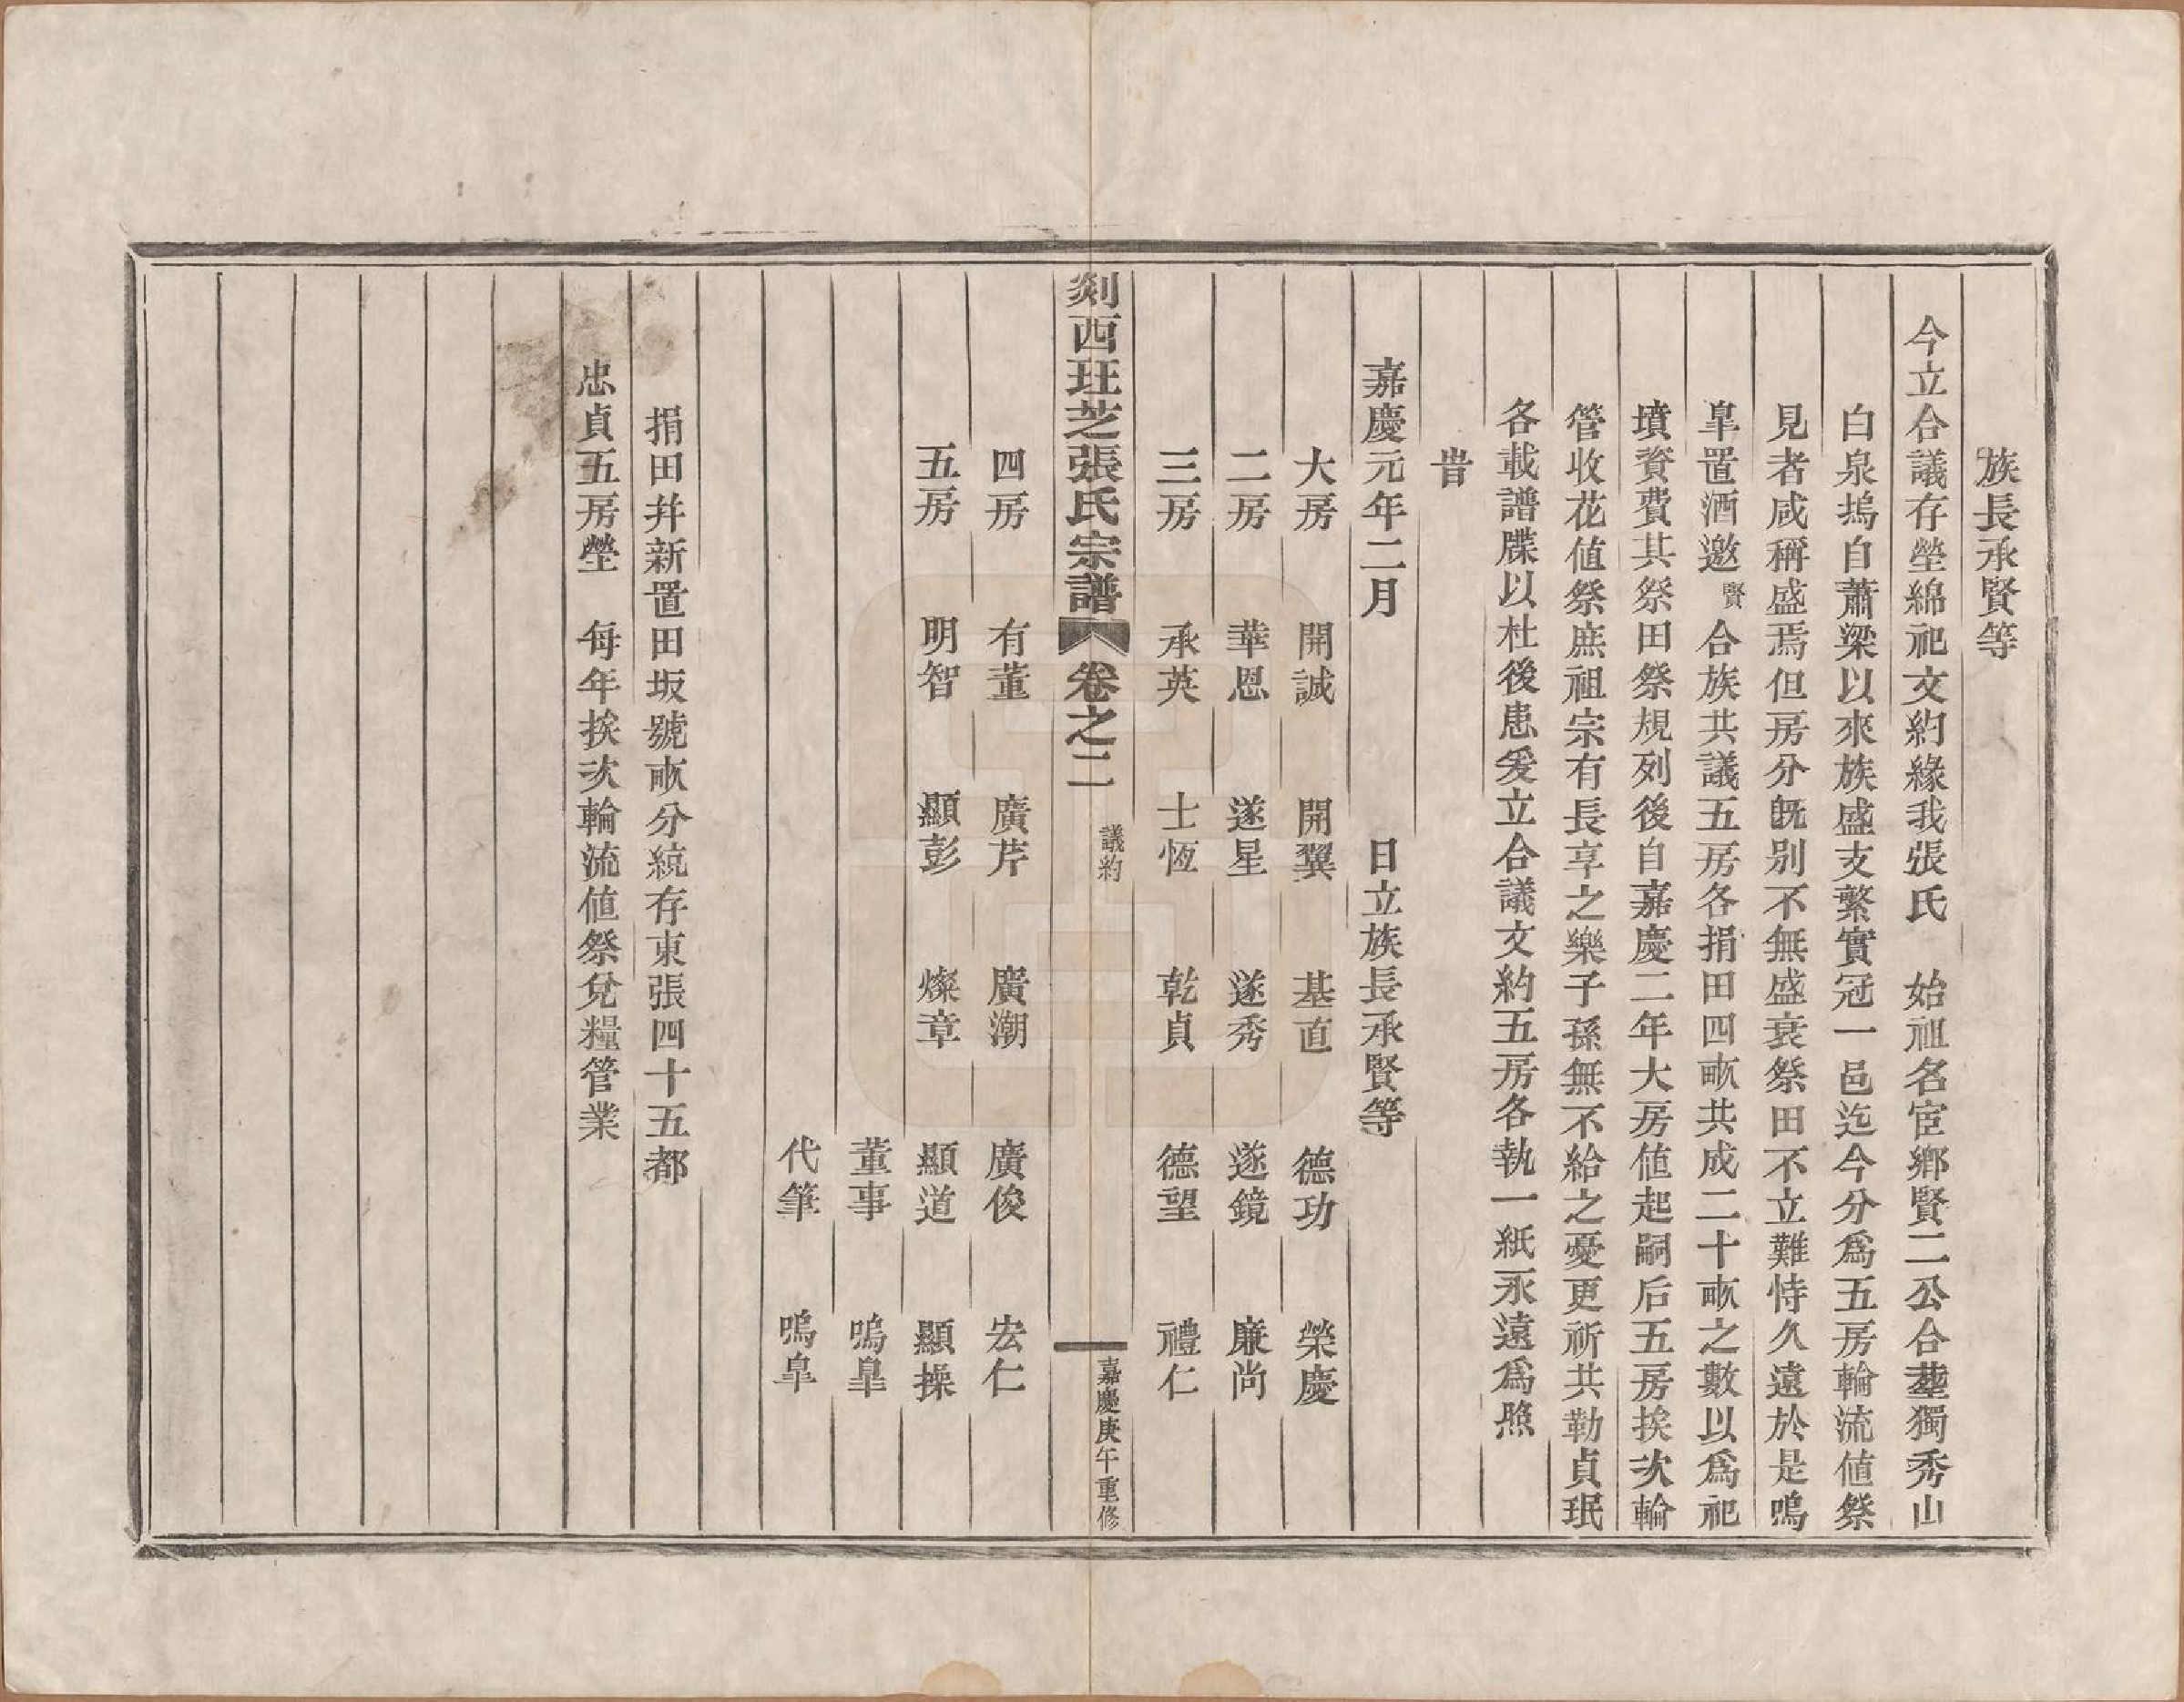 族長承賢等
今立合議存塋綿祀文約緣我張氏　始祖名宦鄉賢二公合塟獨秀山
白泉塢自蕭梁以來族盛支繁實冠一邑迄今分為五房輪流值祭
見者咸稱盛焉但房分既別不無盛衰祭田不立難恃久遠於是鳴
臯置酒邀賢合族共議五房各捐田四畝共成二十畝之數以為祀
墳資費其祭田祭規列後自嘉慶二年大房值起嗣后五房挨次輪
管收花值祭庶祖宗有長享之樂子孫無不給之憂更祈共勒貞珉
各載譜牒以杜後患爰立合議文約五房各執一紙永遠為照
旹
嘉慶元年二月　日立族長承賢等
大房　開誠　開翼　基直　德功　榮慶
二房　華恩　遂星　遂秀　遂鏡　廉尚
三房　承英　士恆　乾貞　德望　禮仁
剡西玨芝張氏宗譜　卷之二　議約　嘉慶庚午重修
四房　有董　廣芹　廣潮　廣俊　宏仁
五房　明智　顯彭　燦章　顯道　顯操
董事　鳴臯
代筆　鳴臯
捐田幷新置田坂號畝分統存東張四十五都
忠貞五房塋　每年挨次輪流值祭兌糧管業